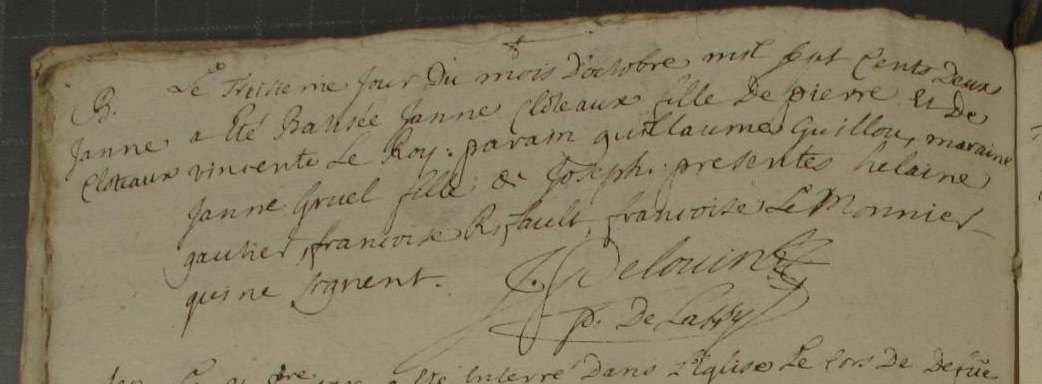 B. Le Treisieme Jour Du mois D'octobre mil sept Cents Deux
Janne a Eté Batisée Janne Cloteaux fille De pierre Et De
Cloteaux vincente Le Roy: parain guillaume Guillou, maraine
Janne Gruel fille de Joseph: presentes helaine
gautier, francoise Riffault, francoise Le Monnier
qui ne signent.
J. Delouine
p. De Lassy
a été Interré Dans l'Eglise Le Cors De Defue